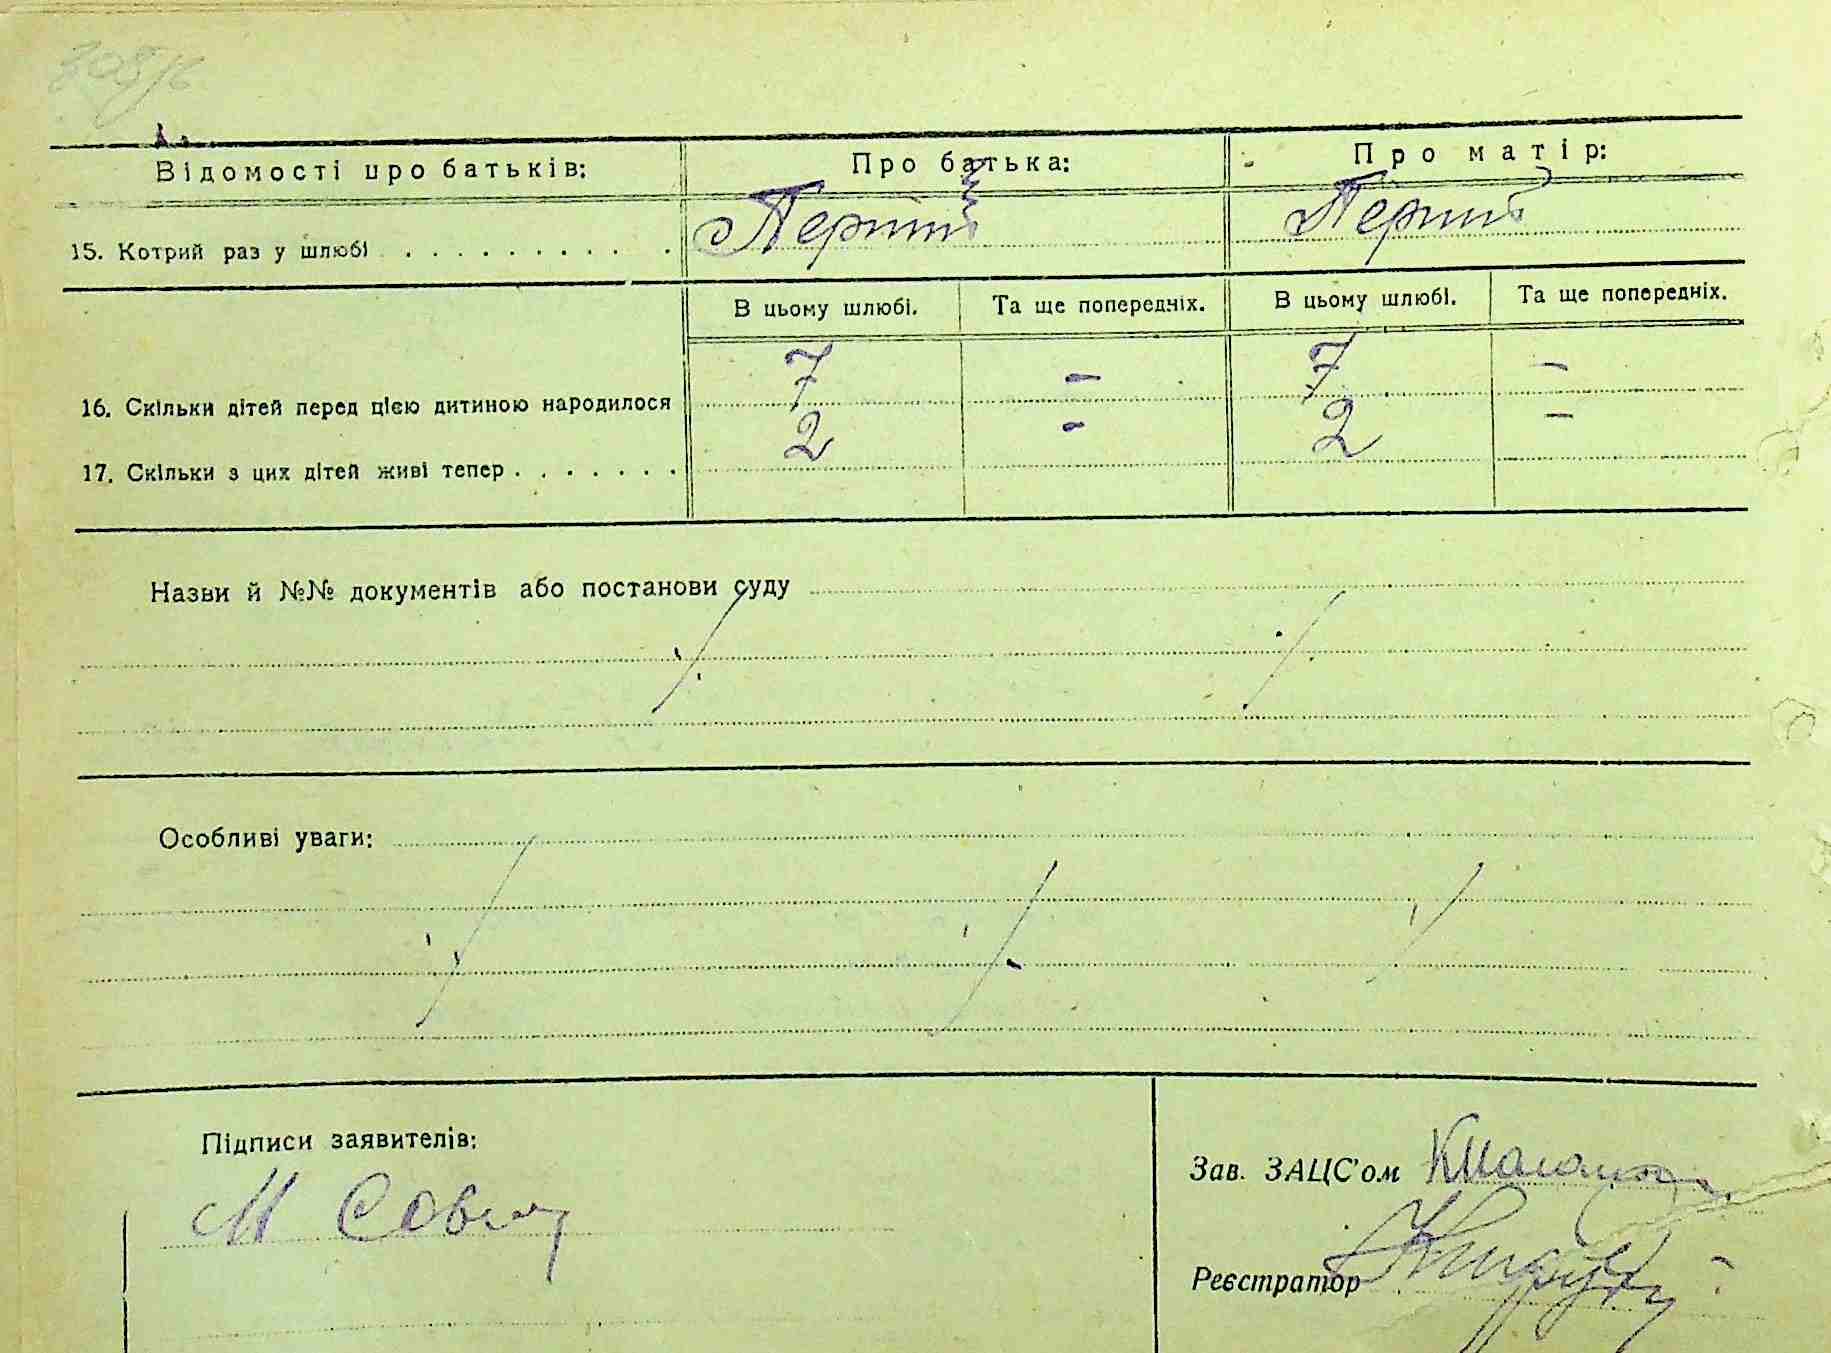 Відомості про батьків: Про батька: Про матір:
15. Котрий раз у шлюбі . . . . . . . . . . Перший Перший
В цьому шлюбі. Та ще попередніх. В цьому шлюбі. Та ще попередніх.
16. Скільки дітей перед цією дитиною народилося 7 - 7 -
17. Скільки з цих дітей живі тепер . . . . . . . 2 - 2 -
Назви й №№ документів або постанови суду
Особливі уваги:
Підписи заявителів:
М
Зав. ЗАЦС'ом
Реєстратор